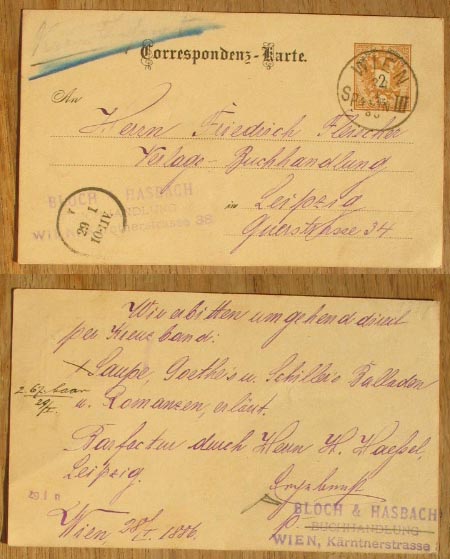 Correspondenz-Karte.
WIEN
2
III
An
Herrn Friedrich Fleischer
Verlags-Buchhandlung
BLOCH & HASBACH
BUCHHANDLUNG
in Leipzig
WIEN, Kärntnerstrasse 38
Querstrasse 34
29
I
Wir erbitten umgehend direct
per Kreuzband:
1 Saupe, Goethe's u. Schiller's Balladen
baar
29/I
u. Romanzen, erläut.
Barfactur durch Herrn H. Haessel,
Leipzig.
Ergebenst
BLOCH & HASBACH
BUCHHANDLUNG
Wien 28/I 1886.
WIEN, Kärntnerstrasse